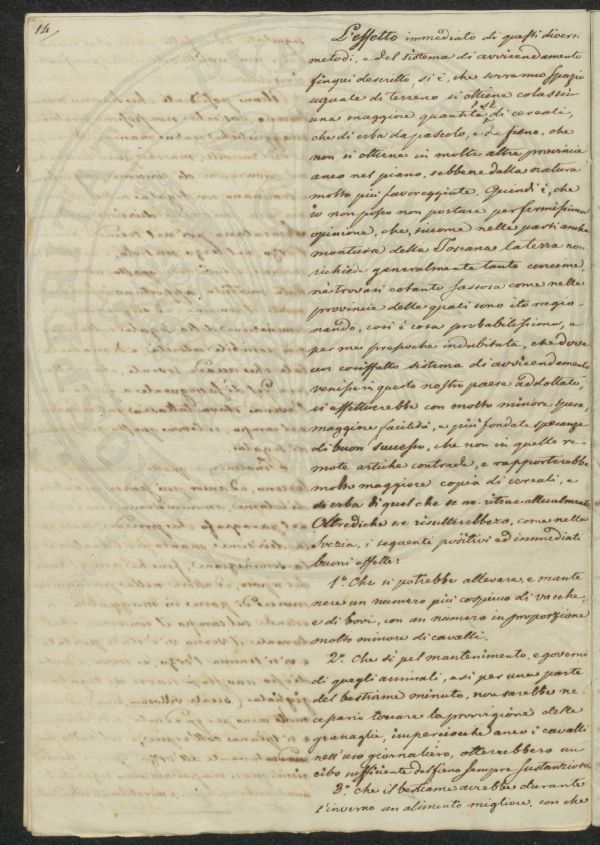 14
L'effetto immediato di questi diversi
metodi, e del sistema di avvicendamento
finqui descritto, si è, che sovra uno spazio
uguale di terreno si ottiene colassù
una maggiore quantità sì di cereali,
che di erba da pascolo, e da fieno, che
non si ottiene in molte altre provincie
anco nel piano, sebbene dalla natura
molto più favoreggiate. Quindi è, che
io non posso non portare per fermissima
opinione, che, siccome nelle parti anche
montuose della Toscana la terra non
richiede generalmente tanto concime,
nè trovasi cotanto sassosa come nelle
provincie delle quali sono ito ragio-
nando, così è cosa probabilissima, e
per me pressoche indubitata, che dove
un cosiffatto sistema di avvicendamento
venisse in questo nostro paese addottato,
si effettuerebbe con molto minore spesa,
maggiore facilità, e più fondate speranze
di buon successo, che non in quelle re-
mote artiche contrade, e rapporterebbe
molto maggiore copia di cereali, e
di erba di quel che se ne ritrae attualmente.
Oltrediche ne risulterebbero, come nella
Svezia, i seguenti positivi ed immediati
buoni effetti:
1.º Che si potrebbe allevare, e mante
nere un numero più cospicuo di vacche,
e di bovi, con un numero in proporzione
molto minore di cavalli.
2.º Che sì pel mantenimento, e governo
di quegli animali, e sì per una parte
del bestiame minuto, non sarebbe ne-
cessario toccare la provvigione delle
granaglie, imperciocchè anco i cavalli
nell'uso giornaliero, otterrebbero un
cibo sufficiente del fieno sempre sustanzioso
3.º Che il bestiame avrebbe durante
l'inverno un alimento migliore, con che